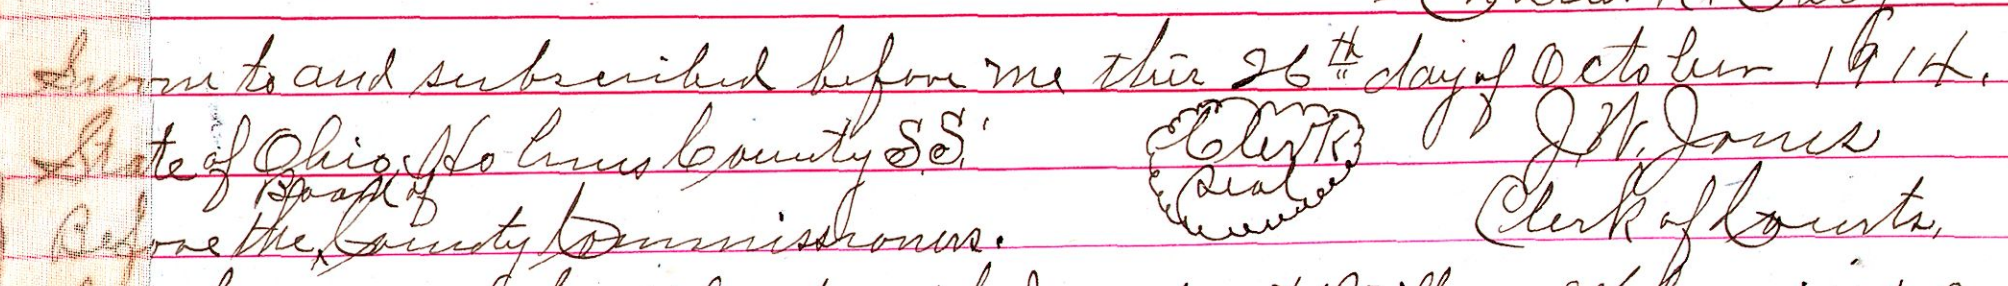 Sworn to and subscribed before me this 26th day of October 1914.
State of Ohio, Holmes County SS. Clerk J. W. Jones
Board of Seal
Before the County Commissioners. Clerk of Courts,